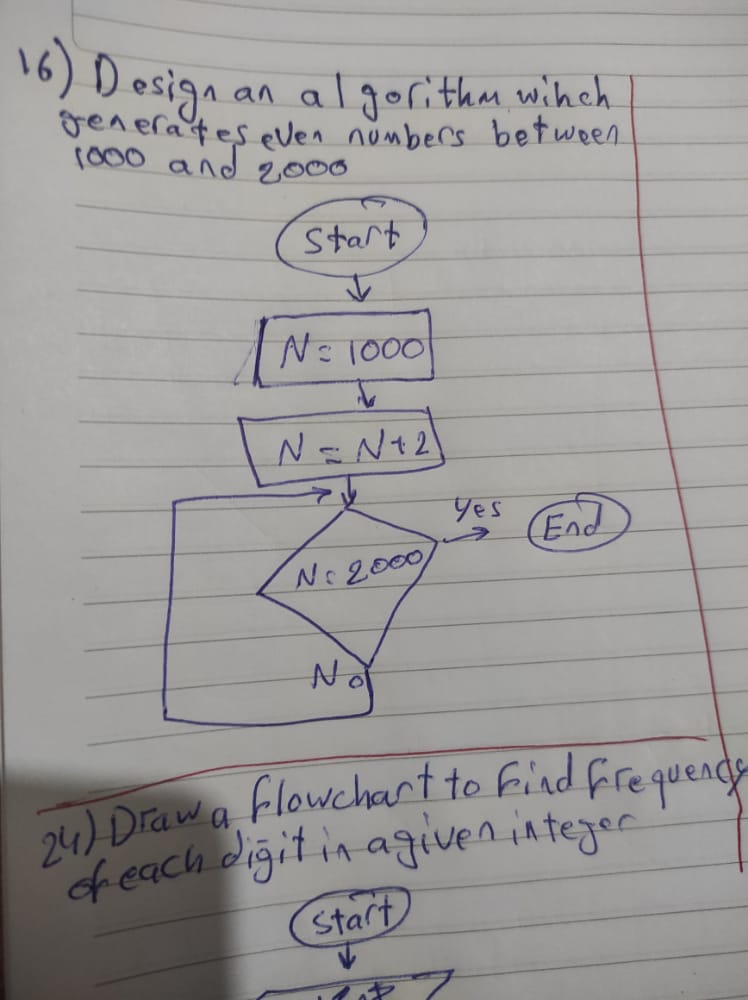 16) Design an algorithm wihch
generates even numbers between
1000 and 2000
Start
N = 1000
N = N+2
N = 2000
Yes
End
No
24) Draw a flowchart to Find Frequency
of each digit in a given integer
Start